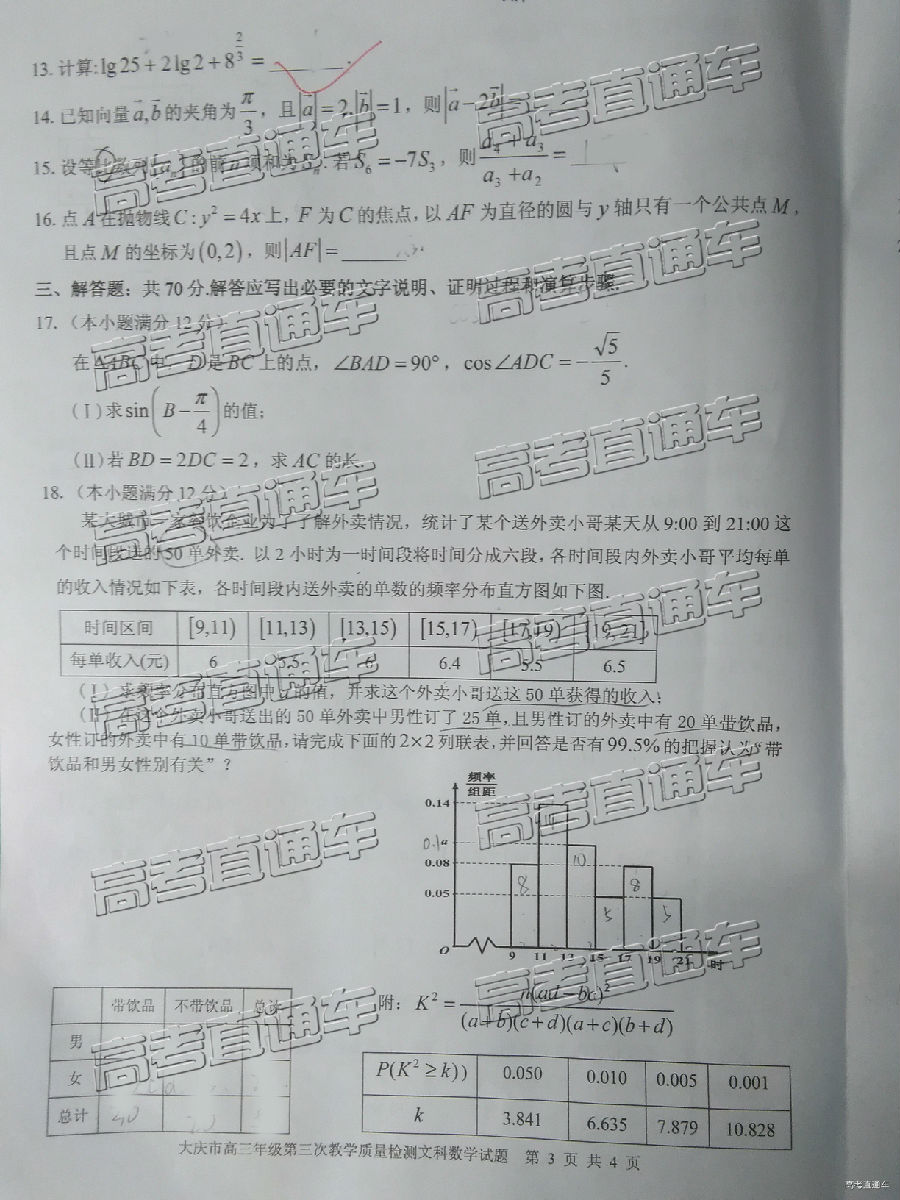 13. 计算:lg25+2lg2+8^{2/3}=______.
14. 已知向量a,b的夹角为π/3，且|a|=2,|b|=1，则|a-2b|=
15. 设等比数列{a_n}的前n项和为S_n.若S_6=-7S_3，则(a_4+a_3)/(a_3+a_2)=
16. 点A在抛物线C:y²=4x上，F为C的焦点，以AF为直径的圆与y轴只有一个公共点M，
且点M的坐标为(0,2)，则|AF|=______
三、解答题：共70分.解答应写出必要的文字说明、证明过程和演算步骤.
17.（本小题满分12分）
在△ABC中，D是BC上的点，∠BAD=90°，cos∠ADC=-√5/5.
(Ⅰ)求sin(B-π/4)的值；
(Ⅱ)若BD=2DC=2，求AC的长.
18.（本小题满分12分）
某大城市一家餐饮企业为了了解外卖情况，统计了某个送外卖小哥某天从9:00到21:00这
个时间段送的50单外卖. 以2小时为一时间段将时间分成六段，各时间段内外卖小哥平均每单
的收入情况如下表，各时间段内送外卖的单数的频率分布直方图如下图.
时间区间 [9,11) [11,13) [13,15) [15,17) [17,19) [19,21]
每单收入(元) 6 5.5 6 6.4 5.5 6.5
(Ⅰ) 求频率分布直方图中a的值，并求这个外卖小哥送这50单获得的收入；
(Ⅱ) 在这个外卖小哥送出的50单外卖中男性订了25单，且男性订的外卖中有20单带饮品，
女性订的外卖中有10单带饮品，请完成下面的2×2列联表，并回答是否有99.5%的把握认为“带
饮品和男女性别有关”？
频率
组距
0.14
0.1
a
0.08
0.05
10
8
8
5
5
O 9 11 13 15 17 19 21 时
带饮品 不带饮品 总计
男
女
总计
附：K²=n(ad-bc)²/((a+b)(c+d)(a+c)(b+d))
P(K²≥k)) 0.050 0.010 0.005 0.001
k 3.841 6.635 7.879 10.828
大庆市高三年级第三次教学质量检测文科数学试题 第 3 页 共 4 页
高考直通车
高考直通车
高考直通车
高考直通车
高考直通车
高考直通车
高考直通车
高考直通车
高考直通车
高考直通车
高考直通车
高考直通车
高考直通车
高考直通车